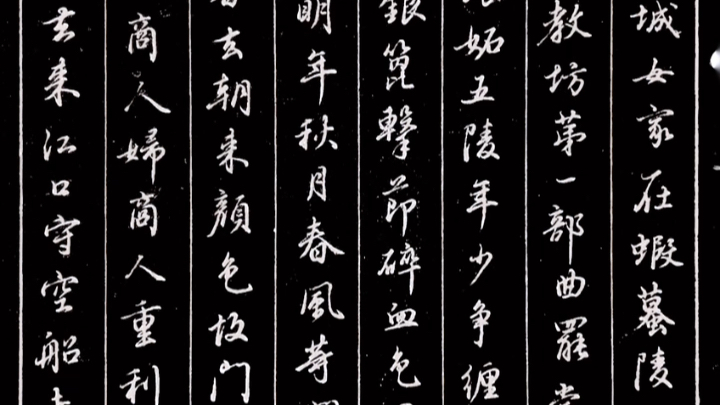 城女家在蝦蟇陵
教坊第一部曲罷
妬五陵年少争纏
銀篦擊節碎血色
明年秋月春風等閒
去朝来顏色故門
商人婦商人重利
去来江口守空船